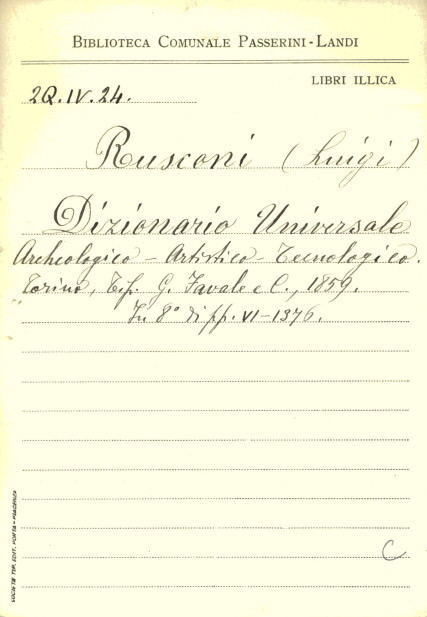 BIBLIOTECA COMUNALE PASSERINI-LANDI
LIBRI ILLICA
2Q.IV.24.
Rusconi (Luigi)
Dizionario Universale
Archeologico - Artistico - Tecnologico.
Torino, Tip. G. Favale e C., 1859.
In 8° di pp. VI-1376.
C
SOCIETÀ TIP. EDIT. PORTA - PIACENZA